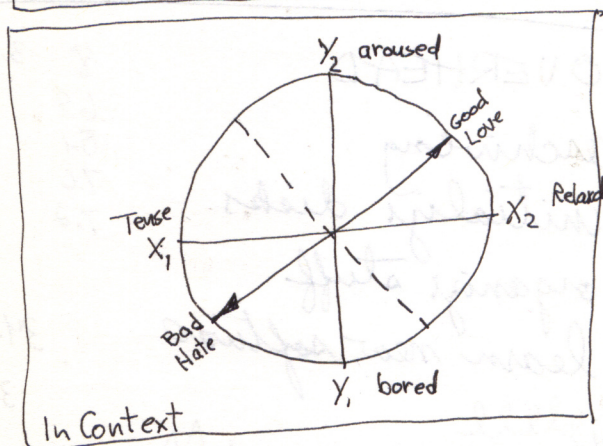 Y₂ aroused
Good
Love
Relaxd
Tense
X₁
X₂
Bad
Hate
Y₁ bored
In Context